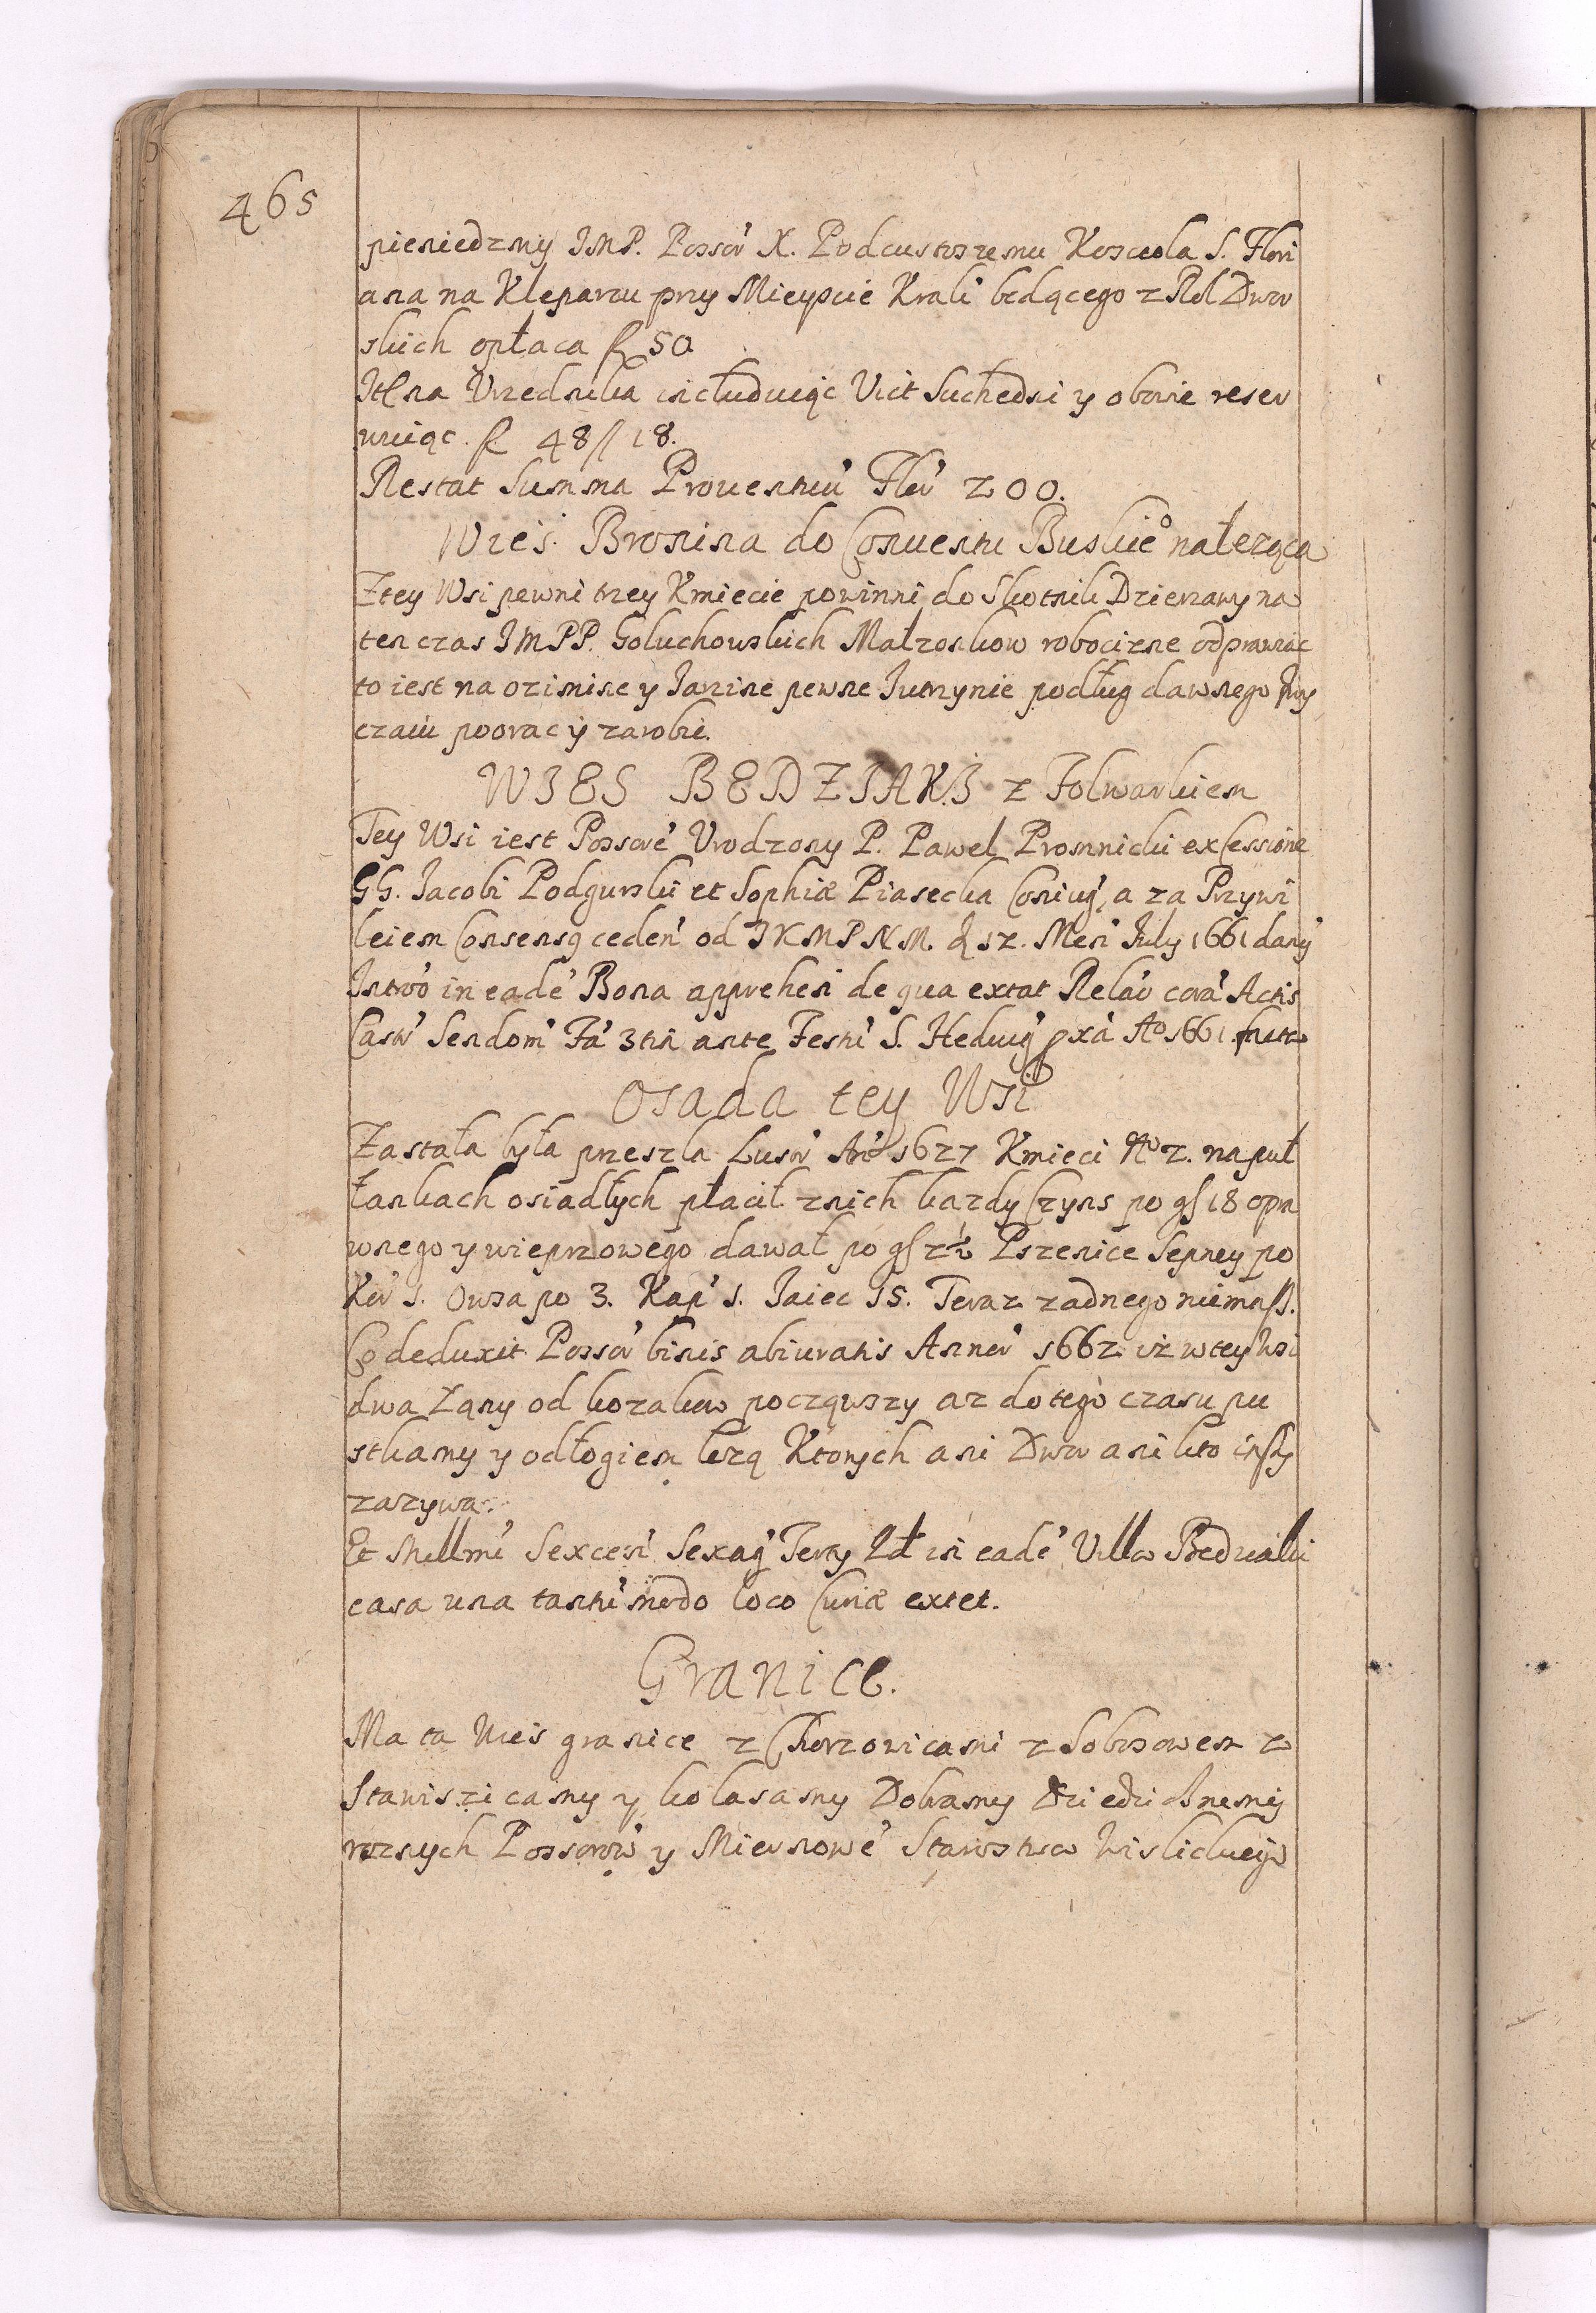 465
pieniedzmy JMP. Possor X. Podcustoszemu Kosceola S. Flori
ana na Kleparzu przy Mieyscie Krali będącego z Rol Dwor
skich opłaca fl 50
Itl na Vrzednika includuiąc Vict Suchedni y obowie reser
wuiąc. fl 48/18.
Restat Summa Prouentuu' Flor' 200.
Wies. Bronina do Conuentu Buskie° nałeząca
Z tey Wsi pewni trzey Kmiecie powinni do Skotnik Dzierzawy na
ten czas JMPP. Goluchowskich Małzonkow robocizne odprawiac
to iest na ozimine y Jarzine pewne Jutrzynie podług dawnego zwy
czaiu poorac y zarobic.
WIES BEDZIAKI z Folwarkiem
Tey Wsi iest Possore' Vrodzony P. Paweł Promnicki ex Cessione
GG. Jacobi Podgurski et Sophiæ Piasecka Coniug', a za Przywi
leiem Consensq ceden' od JKMPNM. d 12. Men' July 1661 dany
Intro' in eade' Bona apprehen de qua extat Relao cora' Actis
Castr' Sendom' Fa' 3tia ante Festu' S. Hedwig' pxa' Ao 1661. facta
Osada tey Wsi
Zastała była przeszla Lustr' An' 1627 Kmieci No 2. na puł
łankach osiadłych płacił z nich kazdy Czyns po gſ 18 opra
wnego y wieprzowego dawał po gſ 2½ Pszenice Sepney po
Kor' 1. Owsa po 3. Kap' 1. Jaiec 15. Teraz zadnego niemaſz.
Co deduxit Possor' binis abiuratis Anner' 1662 iz w tey Wsi
dwa Łąny od kozakow począwszy az do tego czasu pu
stkamy y odłogiem lezą Ktorych ani Dwor ani kto inszy
zazywa.
Et Millmi' Sexcen' Sexag' Terty Id in eade' Villa Bedziaki
casa una tantu'modo loco Curiæ extet.
Granice.
Ma ta Wies granice z Chorzowicami z Sobosowem z
Stawiszicamy y kolasamy Dobramy Dziedzicznemi
roznych Possorow' y Miernowe' Starostwa Wislickiego